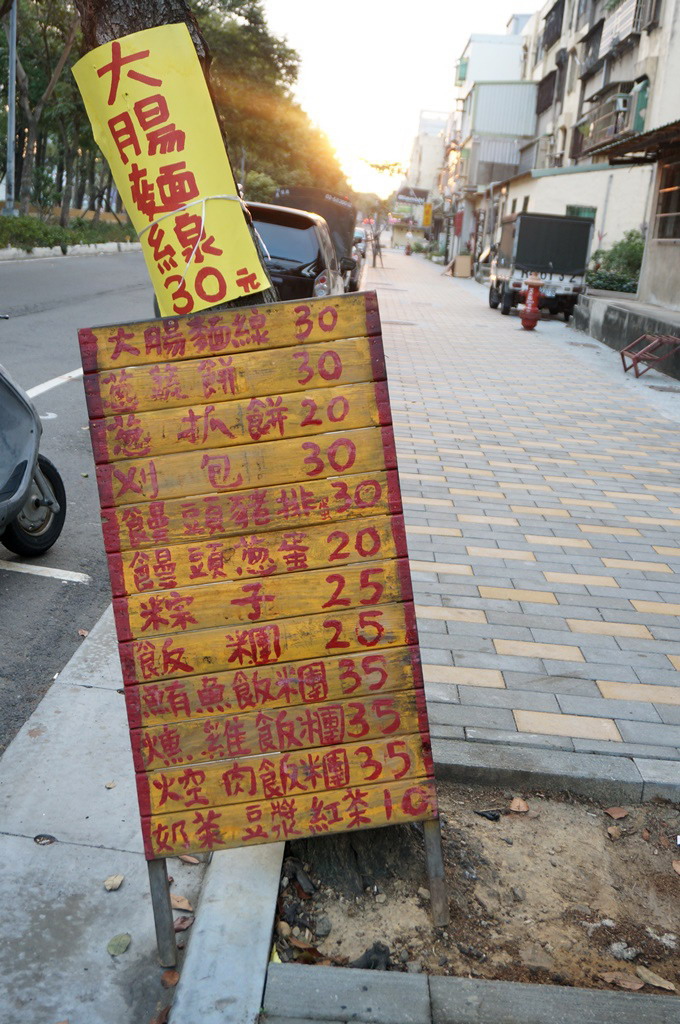 大腸麵線
30元
大腸麵線 30
蔥蔬餅 30
蔥抓餅 20
刈包 30
饅頭豬排蛋30
饅頭蔥蛋 20
粽子 25
飯糰 25
鮪魚飯糰35
燻雞飯糰35
焢肉飯糰35
奶茶 豆漿 紅茶 10